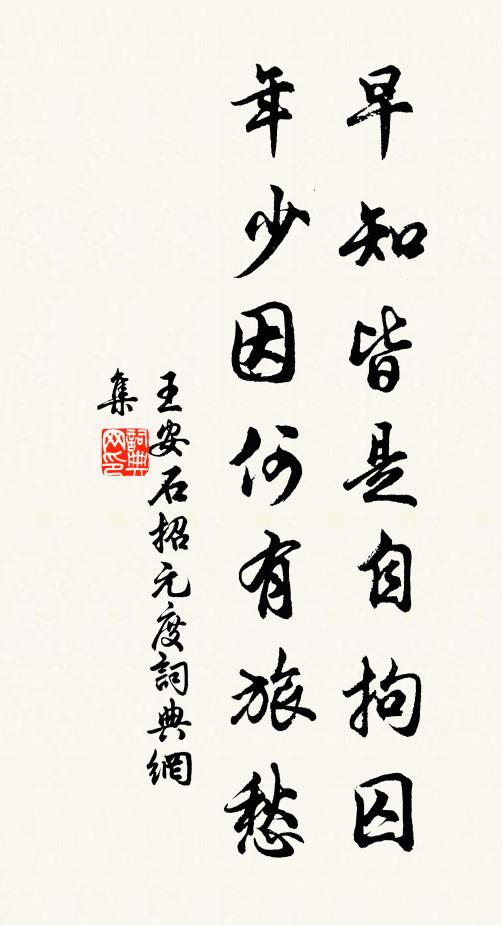 早知皆是自拘囚
年少因何有旅愁
王安石招元度詞典網
集
詞典
网印